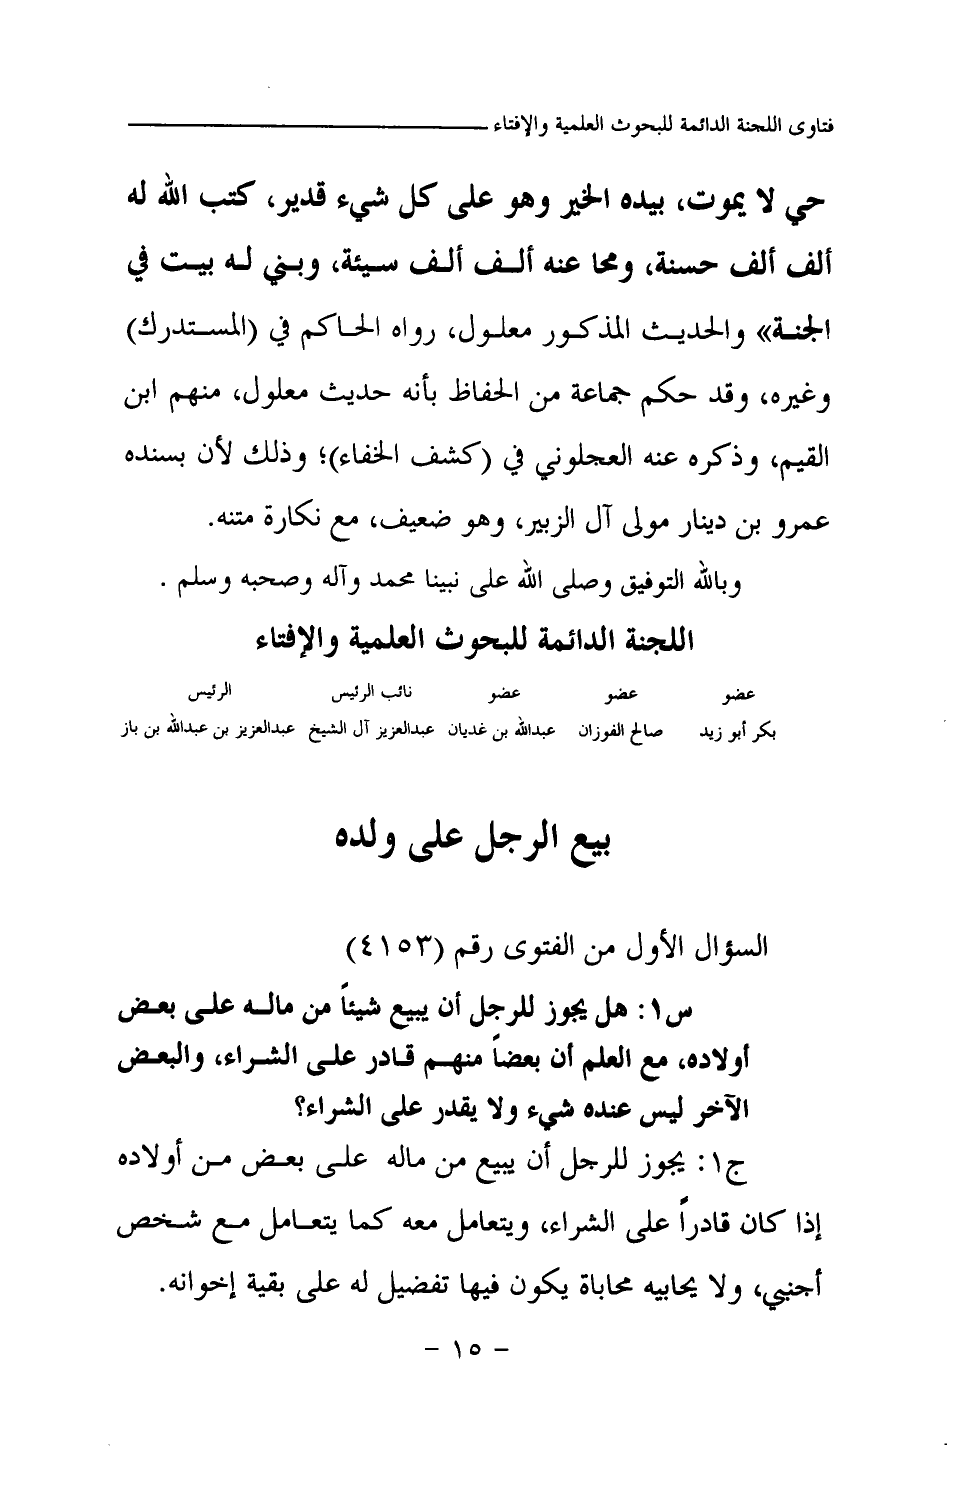 فتاوى اللجنة الدائمة للبحوث العلمية والإفتاء
حي لا يموت، بيده الخير وهو على كل شيء قدير، كتب الله له
ألف ألف حسنة، ومحا عنه ألف ألف سيئة، وبني له بيت في
الجنة» والحديث المذكور معلول، رواه الحاكم في (المستدرك)
وغيره، وقد حكم جماعة من الحفاظ بأنه حديث معلول، منهم ابن
القيم، وذكره عنه العجلوني في (كشف الخفاء)؛ وذلك لأن بسنده
عمرو بن دينار مولى آل الزبير، وهو ضعيف، مع نكارة متنه.
وبالله التوفيق وصلى الله على نبينا محمد وآله وصحبه وسلم .
اللجنة الدائمة للبحوث العلمية والإفتاء
عضو عضو عضو نائب الرئيس الرئيس
بكر أبو زيد صالح الفوزان عبدالله بن غديان عبدالعزيز آل الشيخ عبدالعزيز بن عبدالله بن باز
بيع الرجل على ولده
السؤال الأول من الفتوى رقم (٤١٥٣)
س١: هل يجوز للرجل أن يبيع شيئاً من ماله على بعض
أولاده، مع العلم أن بعضاً منهم قادر على الشراء، والبعض
الآخر ليس عنده شيء ولا يقدر على الشراء؟
ج١: يجوز للرجل أن يبيع من ماله على بعض من أولاده
إذا كان قادراً على الشراء، ويتعامل معه كما يتعامل مع شخص
أجنبي، ولا يحابيه محاباة يكون فيها تفضيل له على بقية إخوانه.
– ١٥ –